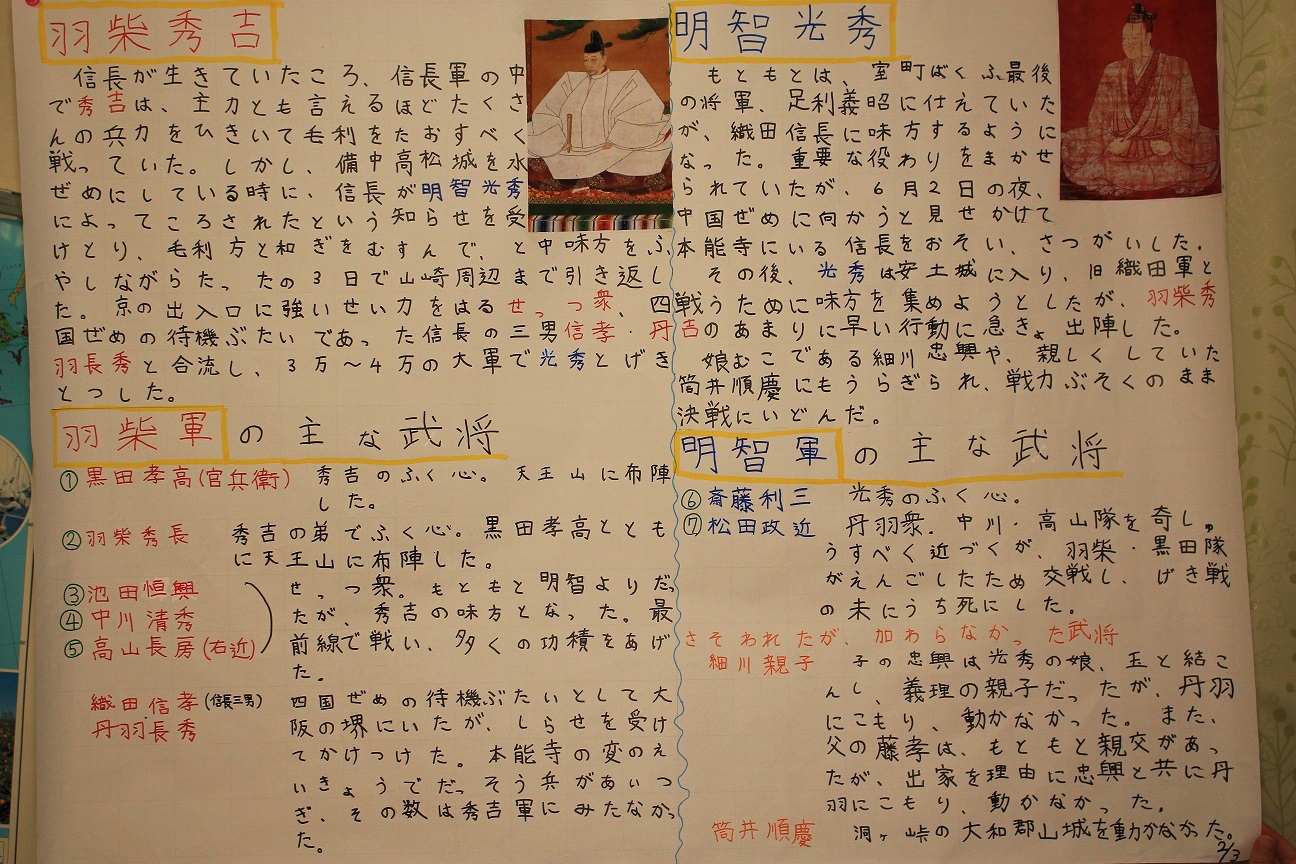 羽柴秀吉
信長が生きていたころ、信長軍の中
で秀吉は、主力とも言えるほどたくさ
んの兵力をひきいて毛利をたおすべく
戦っていた。しかし、備中高松城を水
ぜめにしている時に、信長が明智光秀
によってころされたという知らせを受
けとり、毛利方と和ぎをむすんで、と中味方をふ
やしながらたったの3日で山崎周辺まで引き返し
た。京の出入口に強いせい力をはるせっつ衆、四
国ぜめの待機ぶたいであった信長の三男信孝・丹
羽長秀と合流し、3万〜4万の大軍で光秀とげき
とつした。
羽柴軍の主な武将
①黒田孝高(官兵衛) 秀吉のふく心。天王山に布陣
した。
②羽柴秀長 秀吉の弟でふく心。黒田孝高ととも
に天王山に布陣した。
③池田恒興 せっつ衆。もともと明智よりだっ
④中川清秀 たが、秀吉の味方となった。最
⑤高山長房(右近) 前線で戦い、多くの功積をあげ
た。
織田信孝(信長三男) 四国ぜめの待機ぶたいとして大
丹羽長秀 阪の堺にいたが、しらせを受け
てかけつけた。本能寺の変のえ
いきょうでだっそう兵があいつ
ぎ、その数は秀吉軍にみたなかっ
た。
明智光秀
もともとは、室町ばくふ最後
の将軍、足利義昭に仕えていた
が、織田信長に味方するように
なった。重要な役わりをまかせ
られていたが、6月2日の夜、
中国ぜめに向かうと見せかけて
本能寺にいる信長をおそい、さつがいした。
その後、光秀は安土城に入り、旧織田軍と
戦うために味方を集めようとしたが、羽柴秀
吉のあまりに早い行動に急きょ出陣した。
娘むこである細川忠興や、親しくしていた
筒井順慶にもうらぎられ、戦力ぶそくのまま
決戦にいどんだ。
明智軍の主な武将
⑥斎藤利三 光秀のふく心。
⑦松田政近 丹羽衆.中川・高山隊を奇し。
うすべく近づくが、羽柴・黒田隊
がえんごしたため交戦し、げき戦
の末にうち死にした。
さそわれたが、加わらなかった武将
細川親子 子の忠興は光秀の娘、玉と結こ
んし、義理の親子だったが、丹羽
にこもり、動かなかった。また、
父の藤孝は、もともと親交があっ
たが、出家を理由に忠興と共に丹
羽にこもり、動かなかった。
筒井順慶 洞ヶ峠の大和郡山城を動かなかった。
2/3